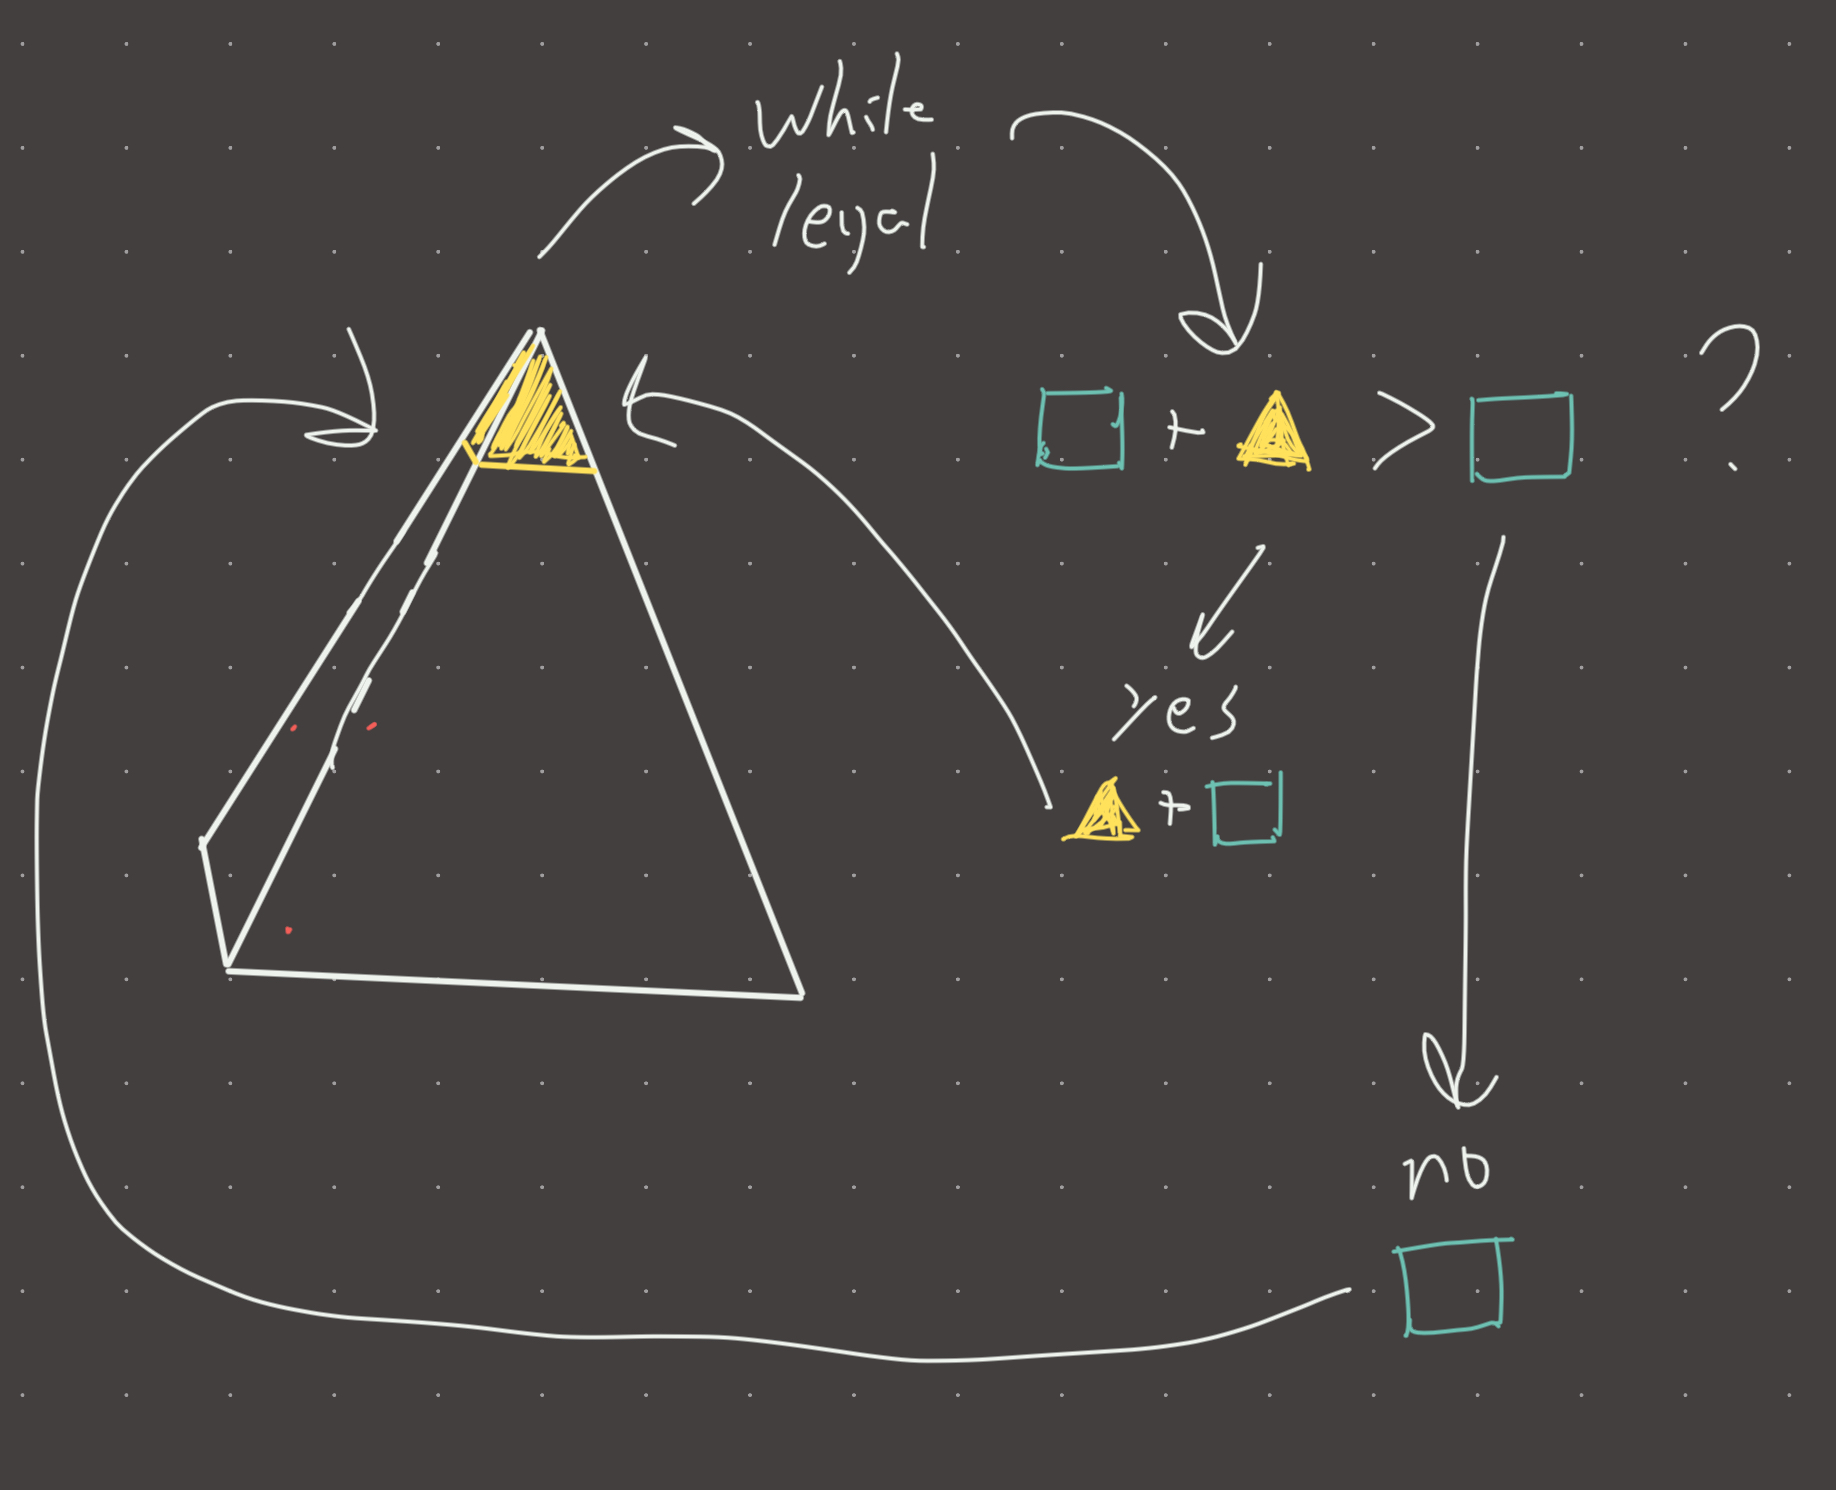 while
legal
+ > ?
yes
+
no